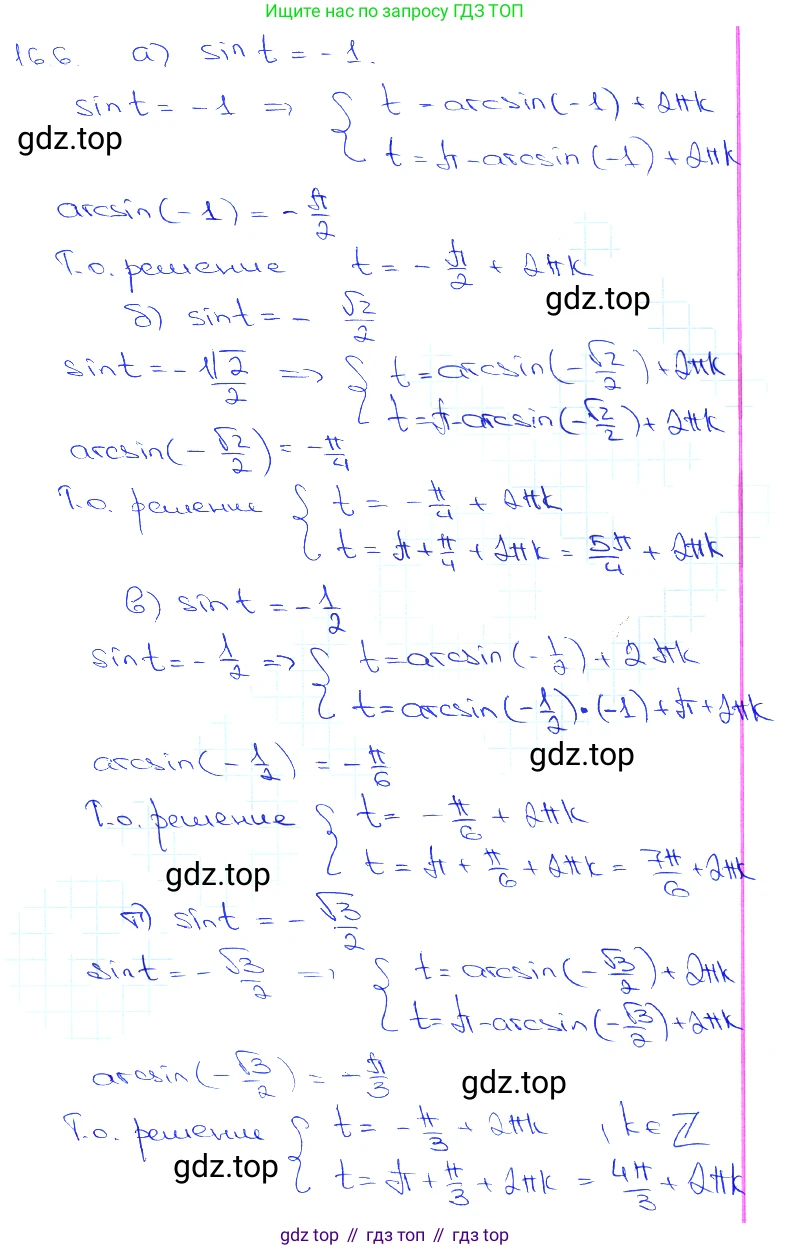 Ищите нас по запросу ГДЗ ТОП
166. а) sin t = -1.
sin t = -1 => { t = arcsin(-1) + 2πk
gdz.top
t = π - arcsin(-1) + 2πk
arcsin(-1) = -π/2
Т.о. решение t = -π/2 + 2πk
gdz.top
б) sin t = - √2/2
sin t = -√2/2 => { t = arcsin(-√2/2) + 2πk
t = π - arcsin(-√2/2) + 2πk
arcsin(-√2/2) = -π/4
Т.о. решение { t = -π/4 + 2πk
t = π + π/4 + 2πk = 5π/4 + 2πk
в) sin t = -1/2
sin t = -1/2 => { t = arcsin(-1/2) + 2πk
t = arcsin(-1/2)·(-1) + π + 2πk
arcsin(-1/2) = -π/6
gdz.top
Т.о. решение { t = -π/6 + 2πk
t = π + π/6 + 2πk = 7π/6 + 2πk
gdz.top
г) sin t = - √3/2
sin t = - √3/2 => { t = arcsin(-√3/2) + 2πk
t = π - arcsin(-√3/2) + 2πk
arcsin(-√3/2) = -π/3
gdz.top
Т.о. решение { t = -π/3 + 2πk , k ∈ Z
t = π + π/3 + 2πk = 4π/3 + 2πk
gdz.top
gdz top // гдз топ // gdz top